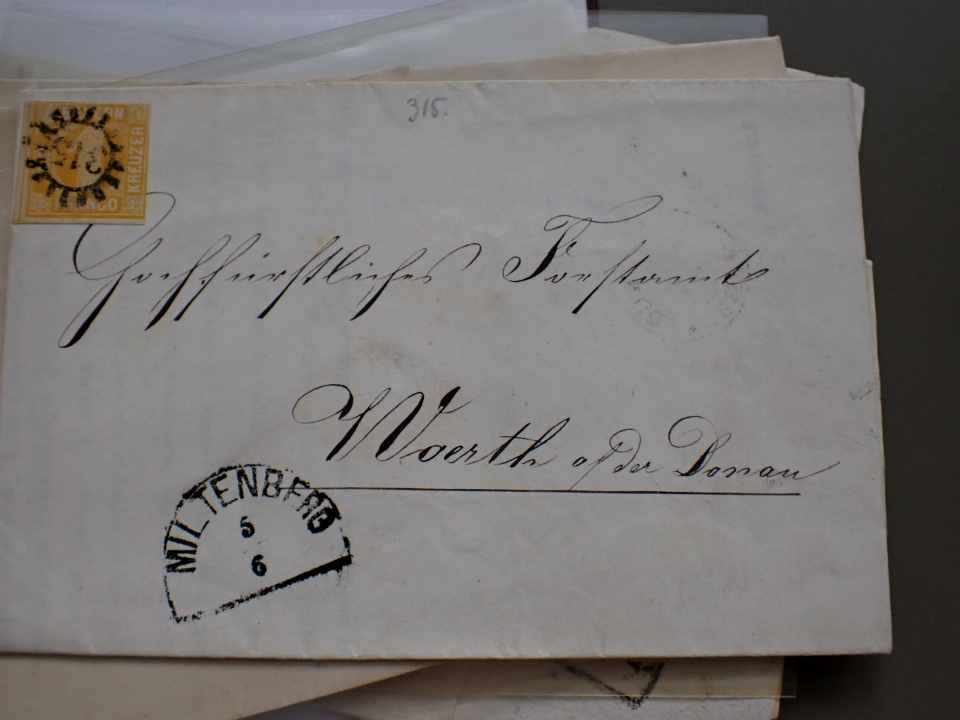 315.
KREUZER
Hochfürstliches Forstamt
Woerth a/der Donau
MILTENBERG
5
6